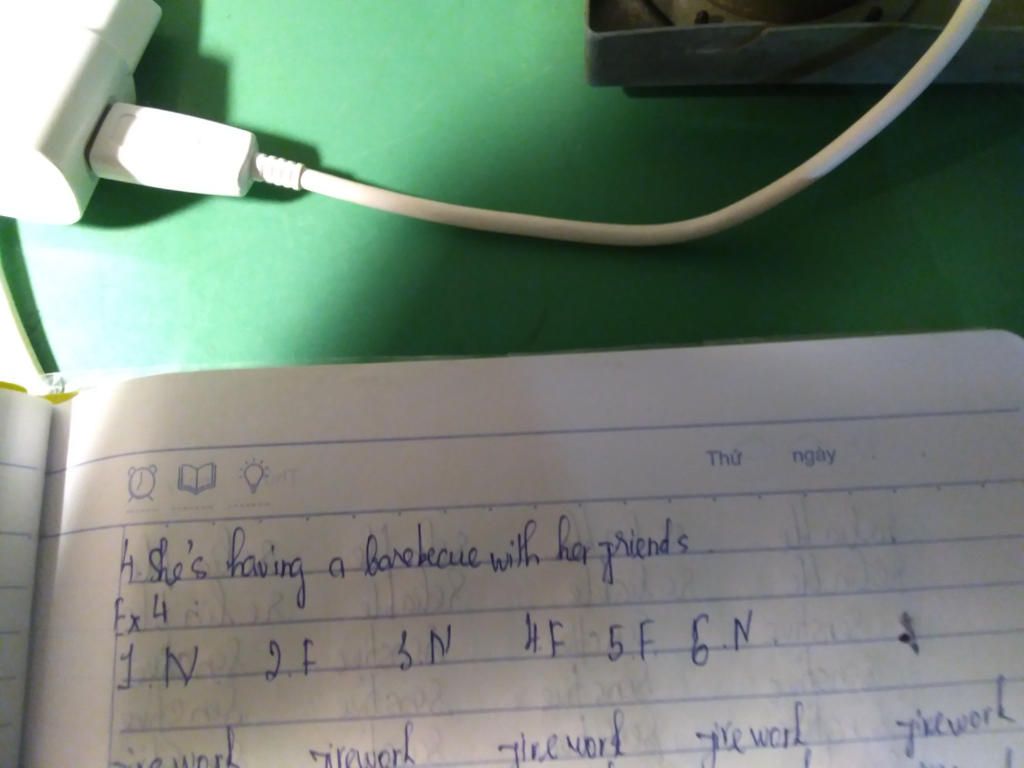 Thứ ngày
4. She's having a barebecue with her friends.
Ex 4 :
1. N 2. F 3. N 4 F 5 F. 6. N.
firework firework firework firework firework